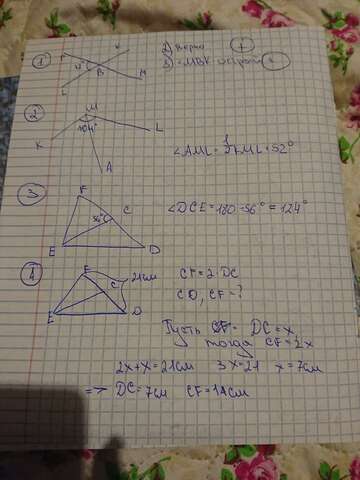 1
K
F
C
B
L
M
1) верно +
2) ∠MBK острый
2
M
104°
K
L
A
∠AML = 1/2 KML = 52°
3
F
C
56°
E
D
∠DCE = 180 - 56° = 124°
4
F
21см
C
E
D
CF = 2 DC
CD, CF - ?
Пусть DC = x,
тогда CF = 2x
2x + x = 21см 3x = 21 x = 7см
=> DC = 7см CF = 14см